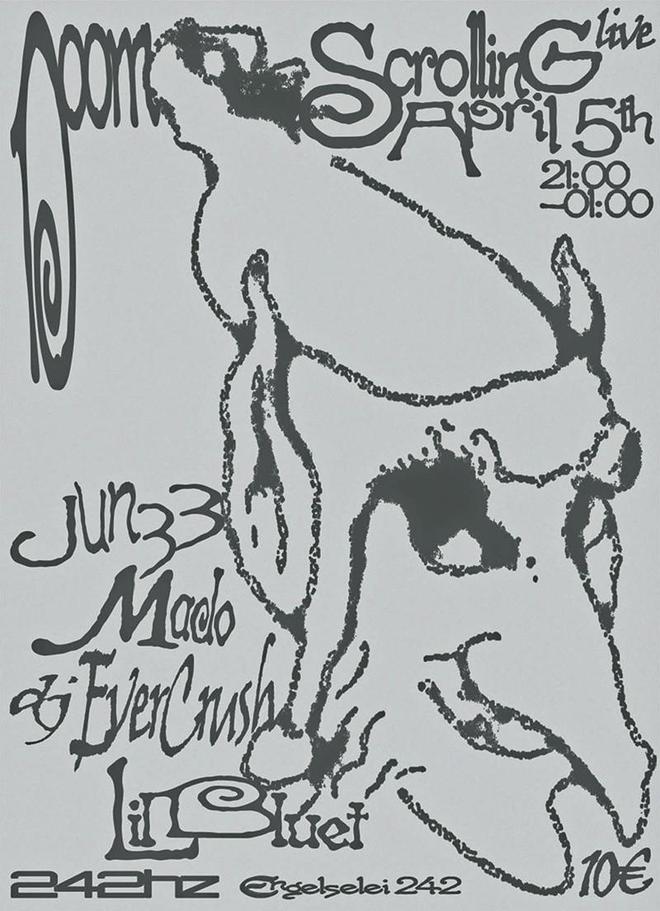 ScrollinG live
April 5th
21:00
–01:00
Jun33
Mado
dj EverCrush
LiL Bluet
242hz Engelselei 242
10€